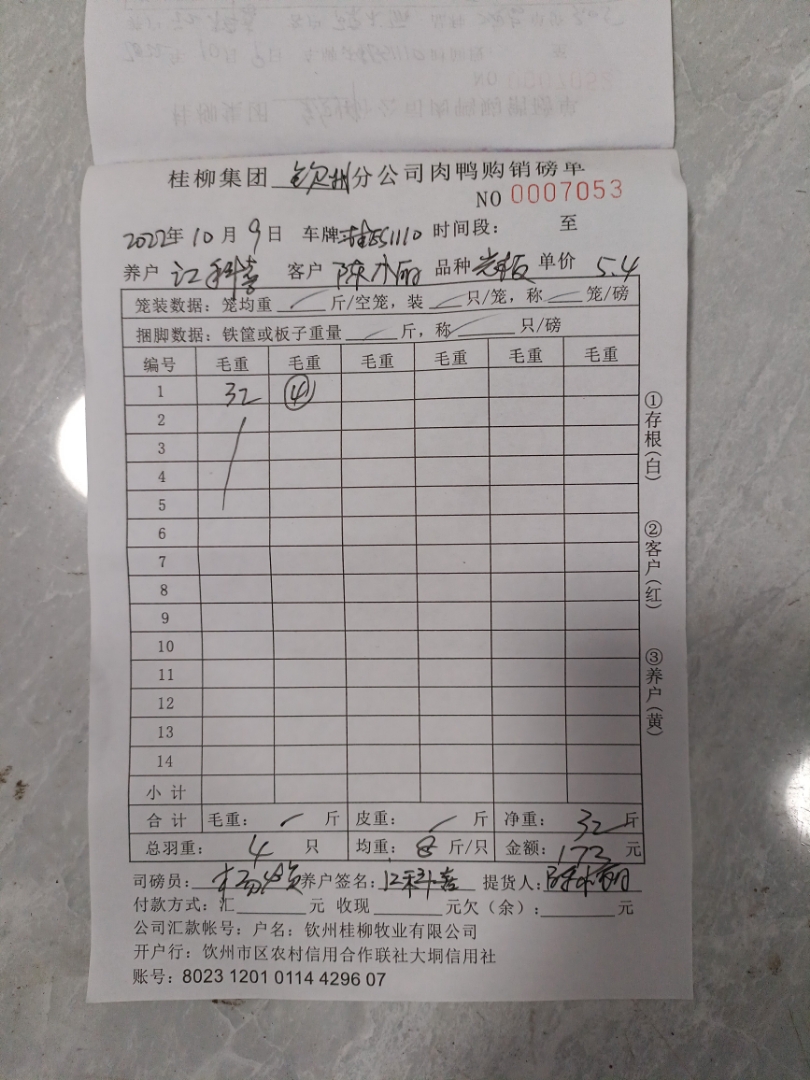 桂柳集团 钦州 分公司肉鸭购销磅单
NO 0007053
2022年 10月 9日 车牌: 时间段: 至
养户 江科喜 客户 陈 丽 品种 单价 5.4
笼装数据: 笼均重 / 斤/空笼, 装 / 只/笼, 称 / 笼/磅
捆脚数据: 铁筐或板子重量 / 斤, 称 / 只/磅
编号 毛重 毛重 毛重 毛重 毛重 毛重
1 32 ④
2
3
4
5
6
7
8
9
10
11
12
13
14
小计
合计 毛重: / 斤 皮重: / 斤 净重: 32 斤
总羽重: 4 只 均重: 8 斤/只 金额: 173 元
司磅员: 养户签名: 江科喜 提货人: 陈 丽
付款方式: 汇 元 收现 元欠(余): 元
公司汇款帐号: 户名: 钦州桂柳牧业有限公司
开户行: 钦州市区农村信用合作联社大垌信用社
账号: 8023 1201 0114 4296 07
①存根(白)
②客户(红)
③养户(黄)